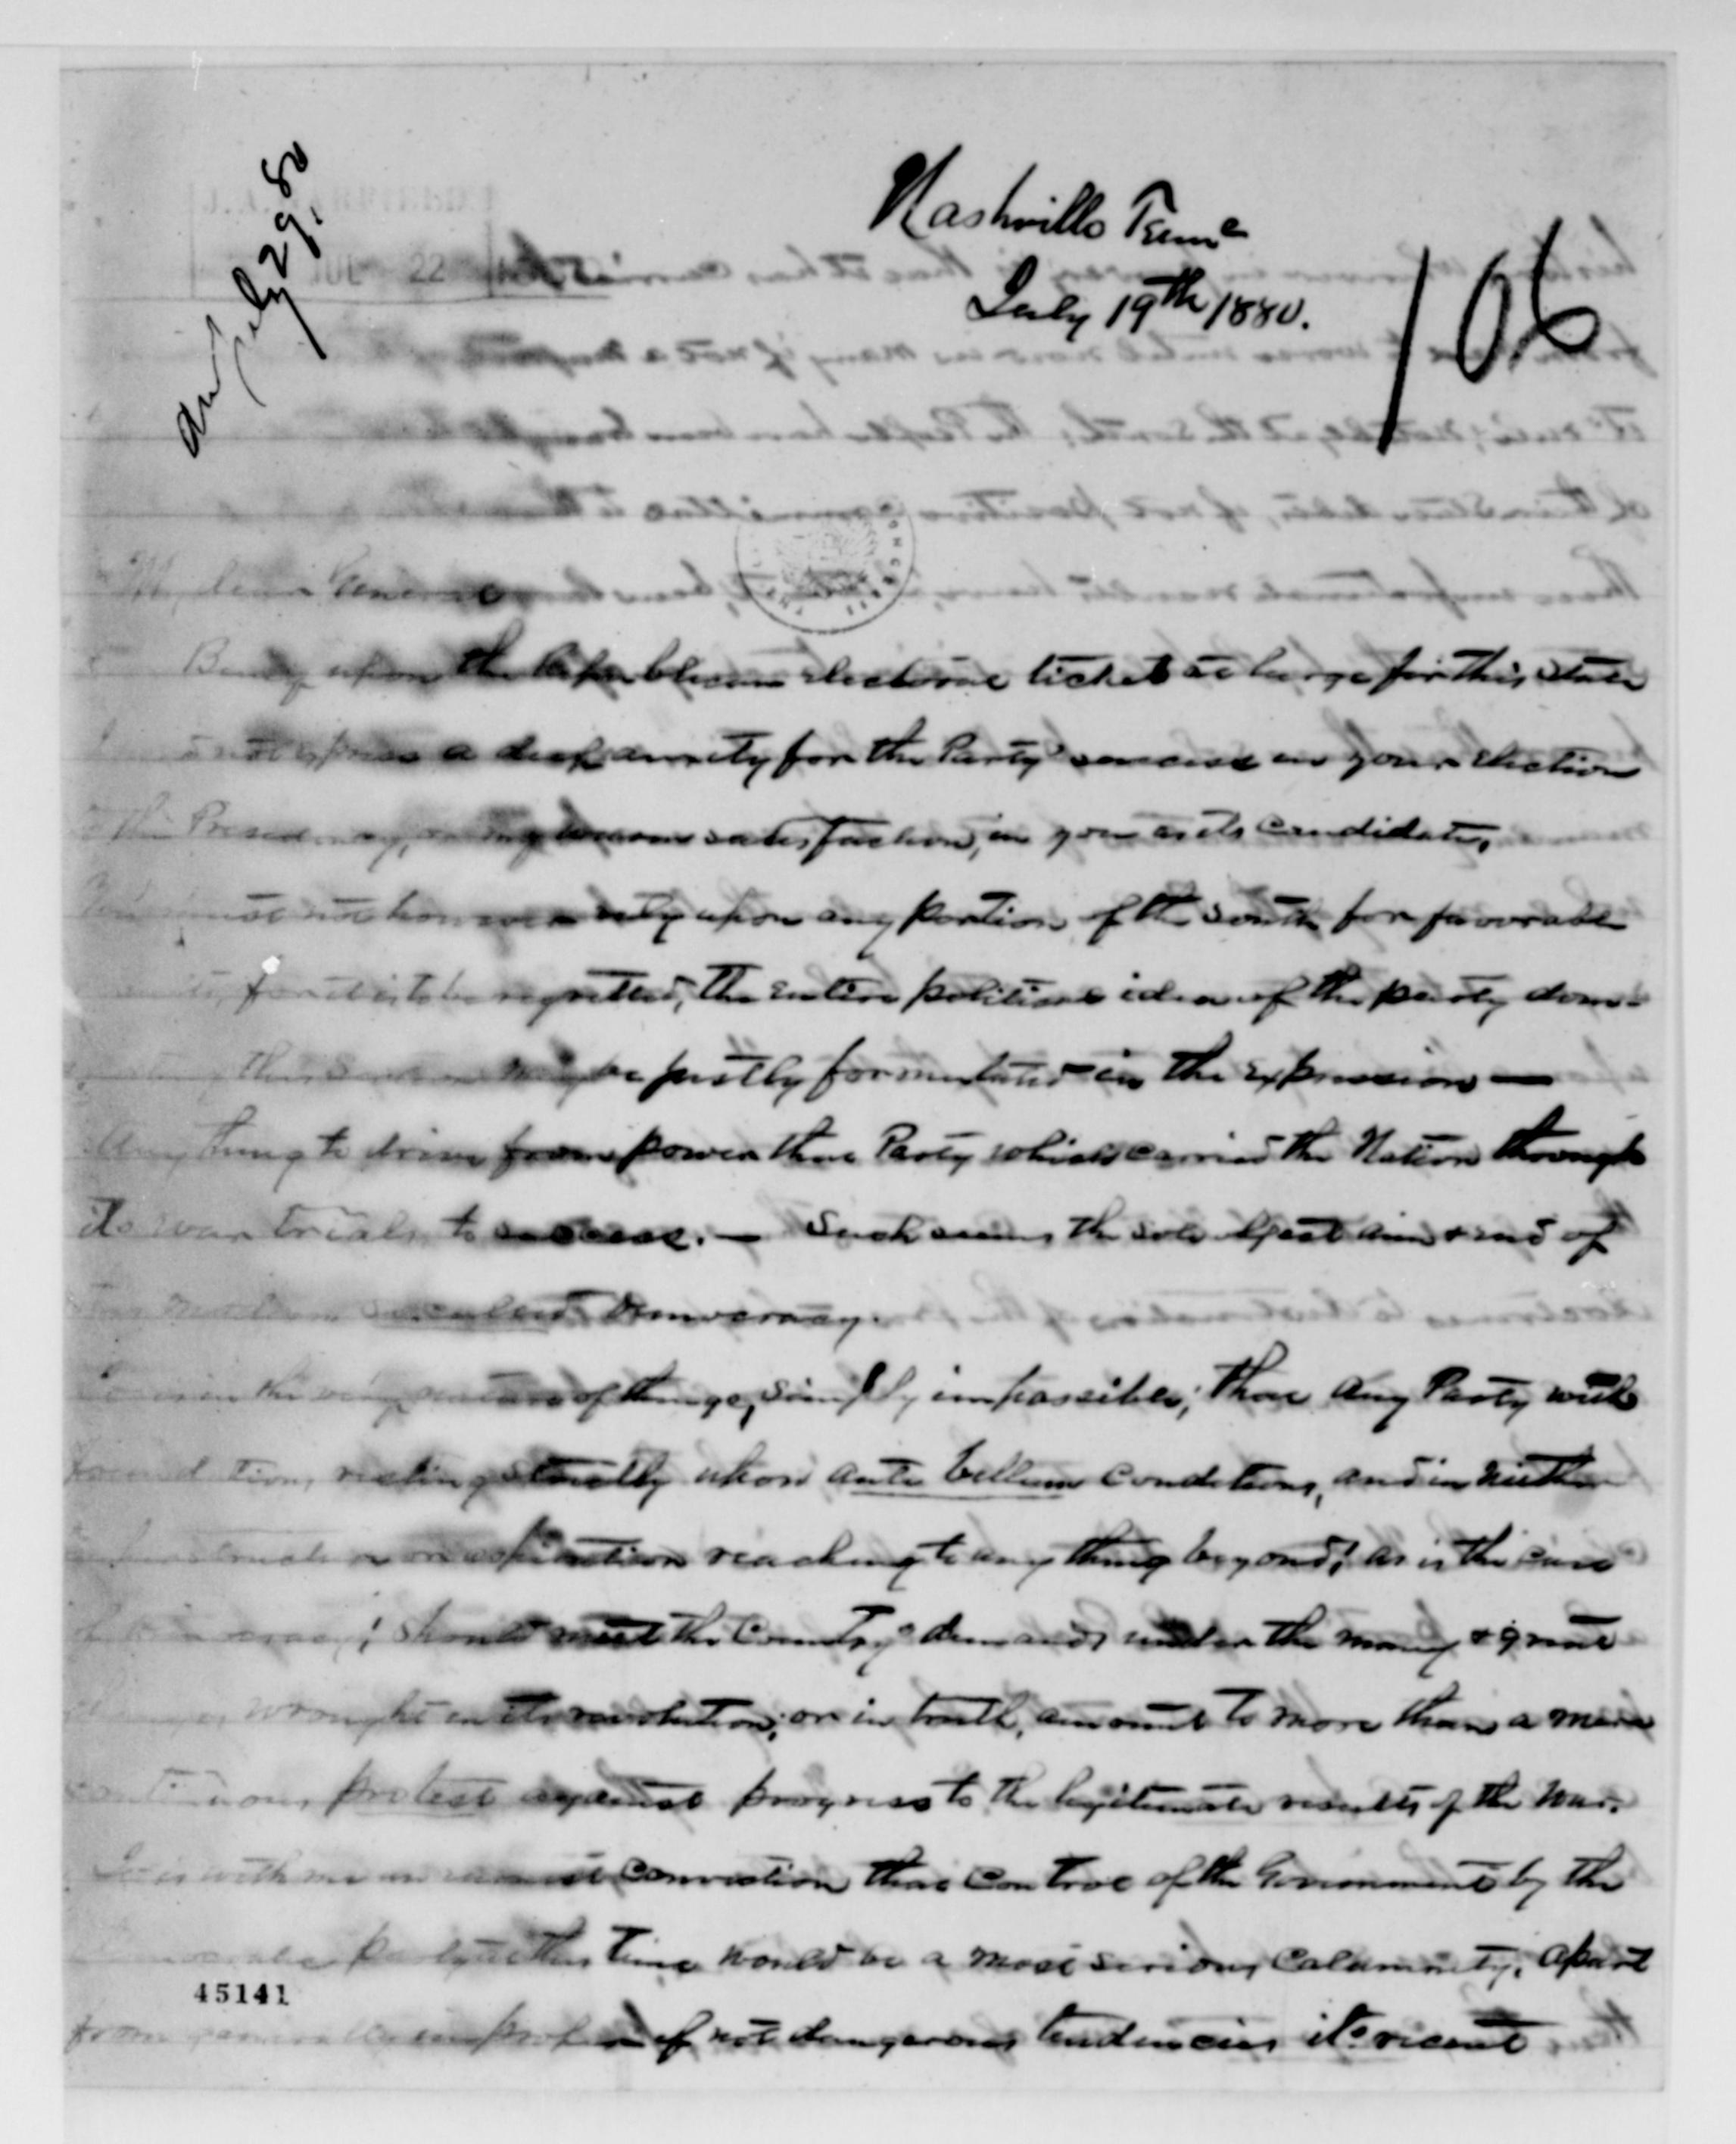 Ansd July 29, 80
J. A. GARFIELD
JUL 22
Nashville Tenne
July 19th 1880.
106
My dear General
Being upon the Republican electoral ticket at large for this State
a deep anxiety for the Party's success in your election
to the Presidency, satisfaction, in you as its candidate,
rely upon any portion of the South for favorable
for it is to be regretted, the entire political idea of the party dom-
be justly formulated in the expression —
Any thing to drive from power that Party which carried the Nation through
its war trials to success. — Such seems the sole great aim & end of
Democracy.
the very nature of things, simply impossible; that any Party with
foundation, resting strictly upon ante bellum conditions, and in neither
or aspiration reaching to any thing beyond; as is the case
; should meet the Country's demands under the many & great
changes wrought in its revolution; or in truth, amount to more than a mere
continuous protest against progress to the legitimate results of the War.
It is with me an earnest conviction that control of the Government by the
Democratic party at this time would be a most serious calamity. Apart
from generally improper if not dangerous tendencies its recent
45141